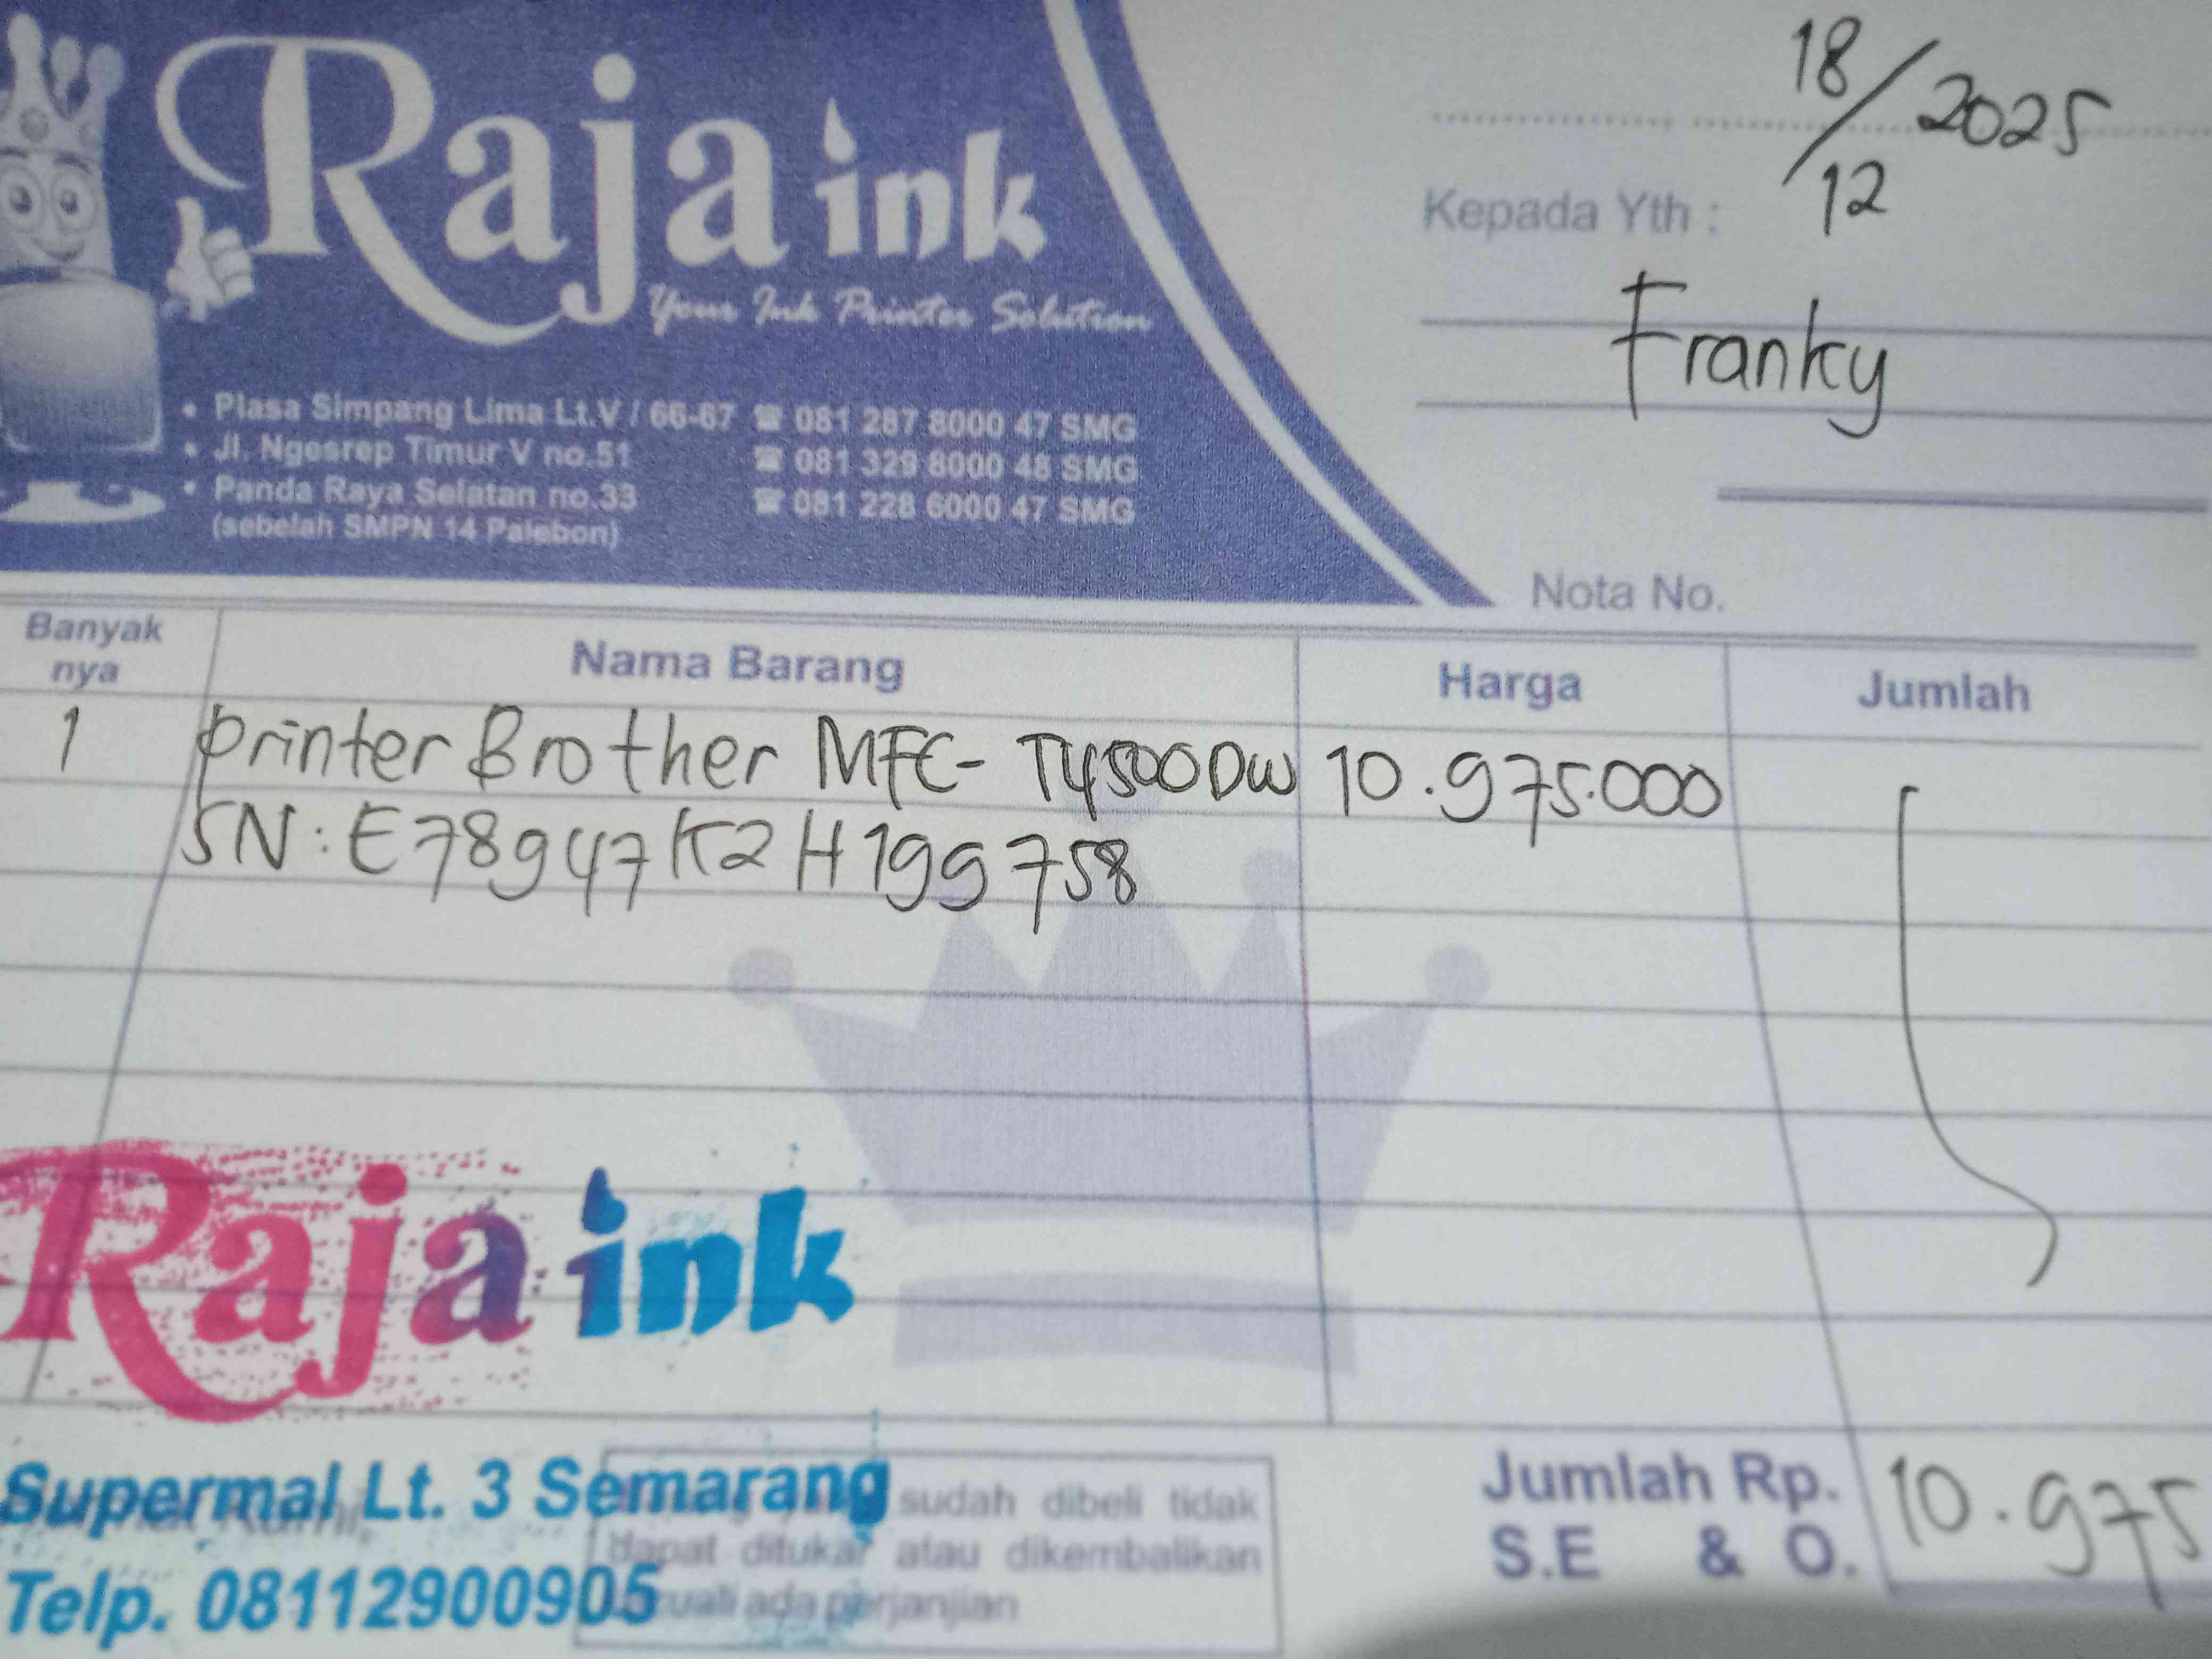 Raja ink
Your Ink Printer Solution
• Plasa Simpang Lima Lt.V / 66-67 ☎ 081 287 8000 47 SMG
• Jl. Ngesrep Timur V no.51 ☎ 081 329 8000 48 SMG
• Panda Raya Selatan no.33 ☎ 081 228 6000 47 SMG
(sebelah SMPN 14 Palebon)
18/12 2025
Kepada Yth :
Franky
Nota No.
Banyak nya Nama Barang Harga Jumlah
1 Printer Brother MFC-T4500DW 10.975.000
SN: E78947K2H199758
Raja ink
Supermal Lt. 3 Semarang
Telp. 08112900905
sudah dibeli tidak
dapat ditukar atau dikembalikan
ada perjanjian
Jumlah Rp. 10.975
S.E & O.